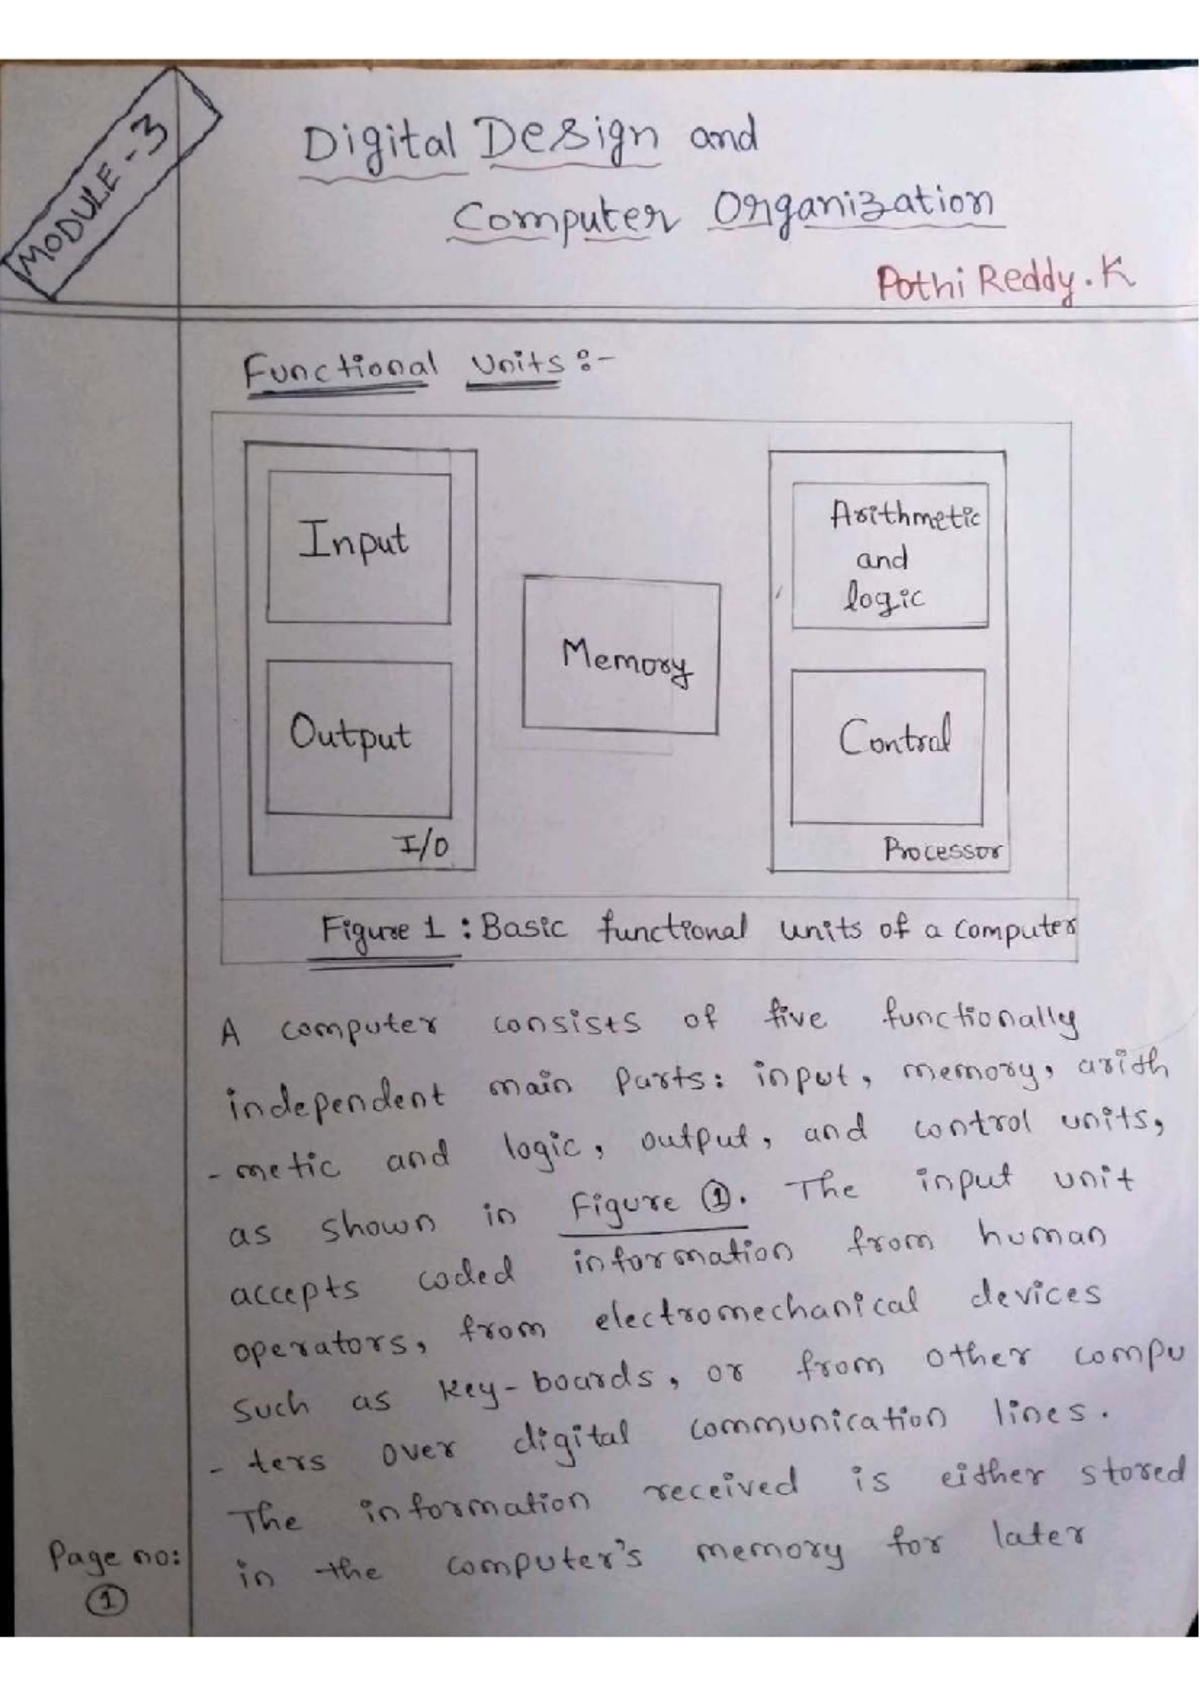 MODULE-3
Digital Design and
Computer Organization
Pothi Reddy.K
Functional Units:-
Input
Output
I/O
Memory
Arithmetic
and
logic
Control
Processor
Figure 1 : Basic functional units of a computer
A computer consists of five functionally
independent main parts: input, memory, arith
-metic and logic, output, and control units,
as shown in Figure ①. The input unit
accepts coded information from human
operators, from electromechanical devices
such as key-boards, or from other compu
-ters over digital communication lines.
The information received is either stored
in the computer's memory for later
Page no:
①